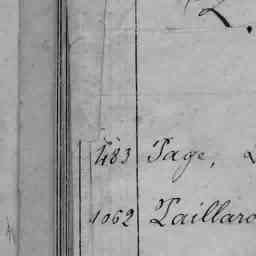 483 Page,
1062 Paillard